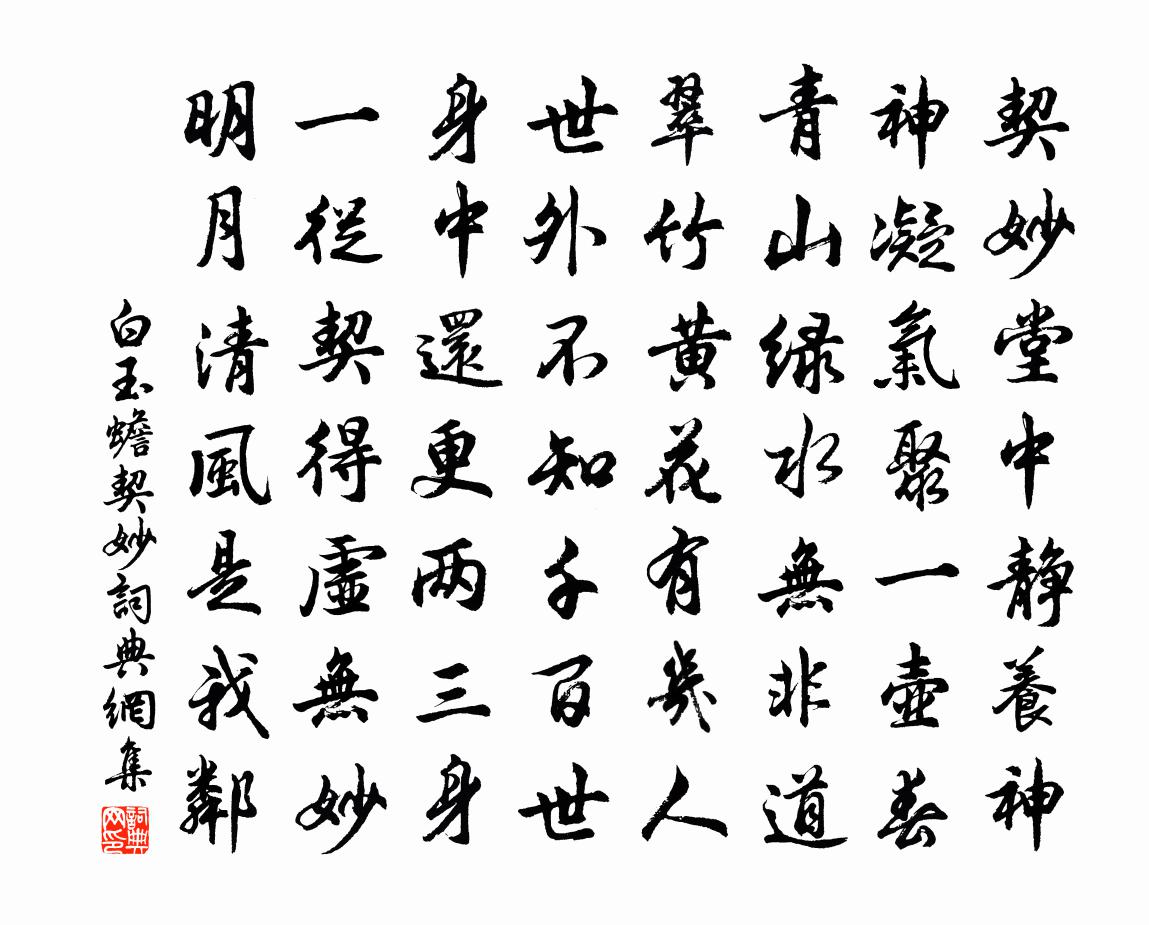 契妙堂中静養神
神凝氣聚一壺春
青山緑水無非道
翠竹黄花有幾人
世外不知千百世
身中還更两三身
一從契得虛無妙
明月清風是我鄰
白玉蟾契妙詞典網集
詞典
网印